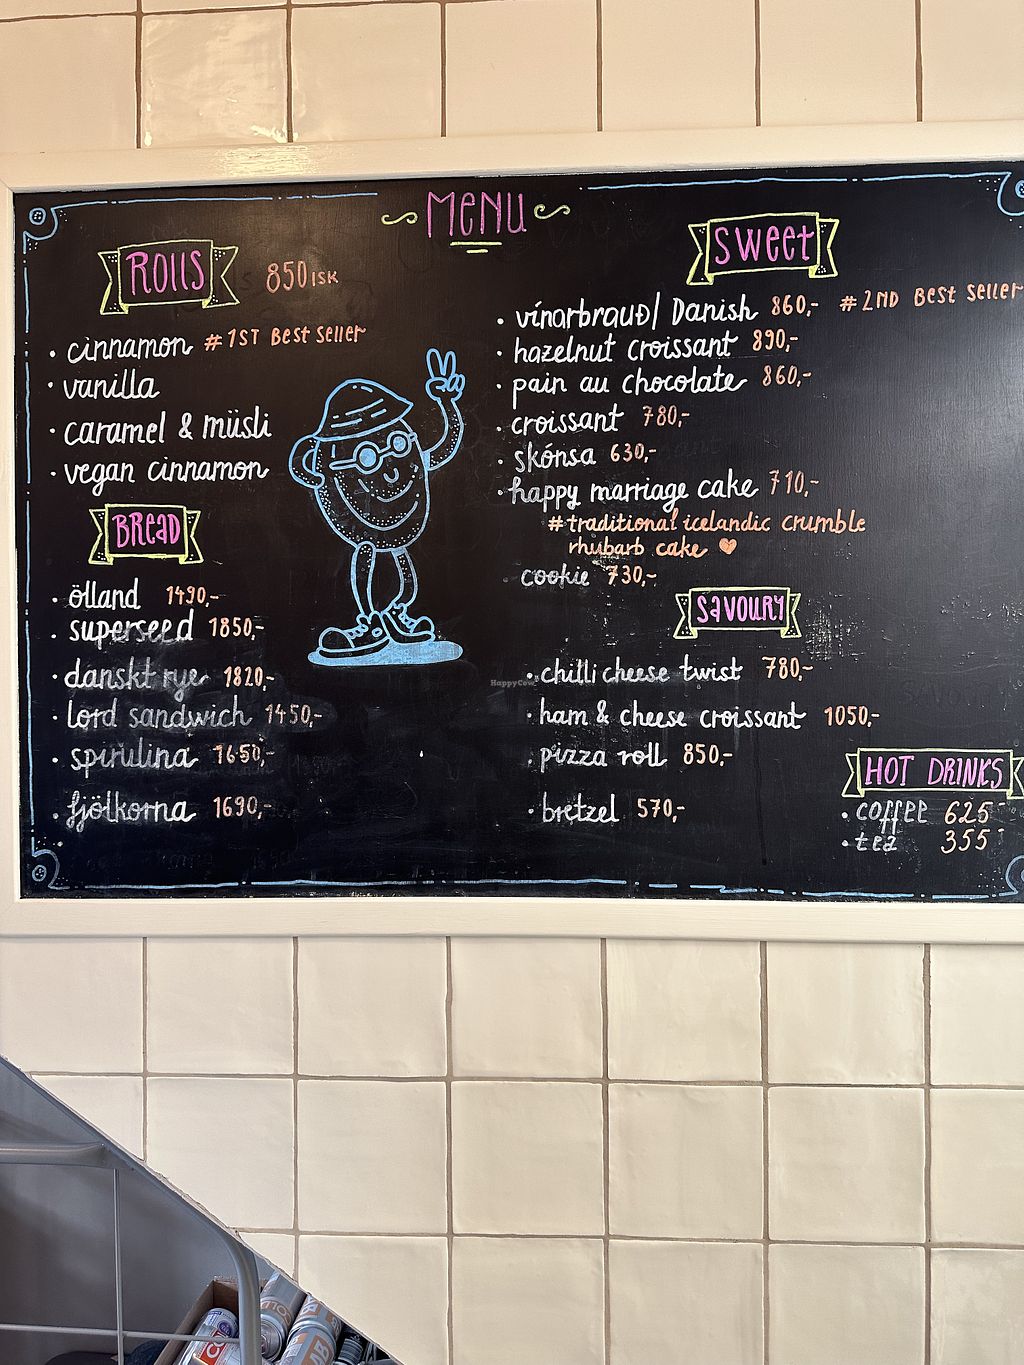 MENU
ROLLS 850 ISK
· cinnamon #1ST Best seller
· vanilla
· caramel & müsli
· vegan cinnamon
BREAD
· ölland 1490,-
· superseed 1850,-
· danskt rye 1820,-
· lord sandwich 1450,-
· spirulina 1650,-
· fjölkorna 1690,-
SWEET
· vínarbrauð/ Danish 860,- #2ND Best seller
· hazelnut croissant 890,-
· pain au chocolate 860,-
· croissant 780,-
· skónsa 630,-
· happy marriage cake 710,-
#traditional icelandic crumble
rhubarb cake ♥
· cookie 730,-
SAVOURY
· chilli cheese twist 780,-
· ham & cheese croissant 1050,-
· pizza roll 850,-
· bretzel 570,-
HOT DRINKS
· coffee 625-
· tea 355-
HappyCow